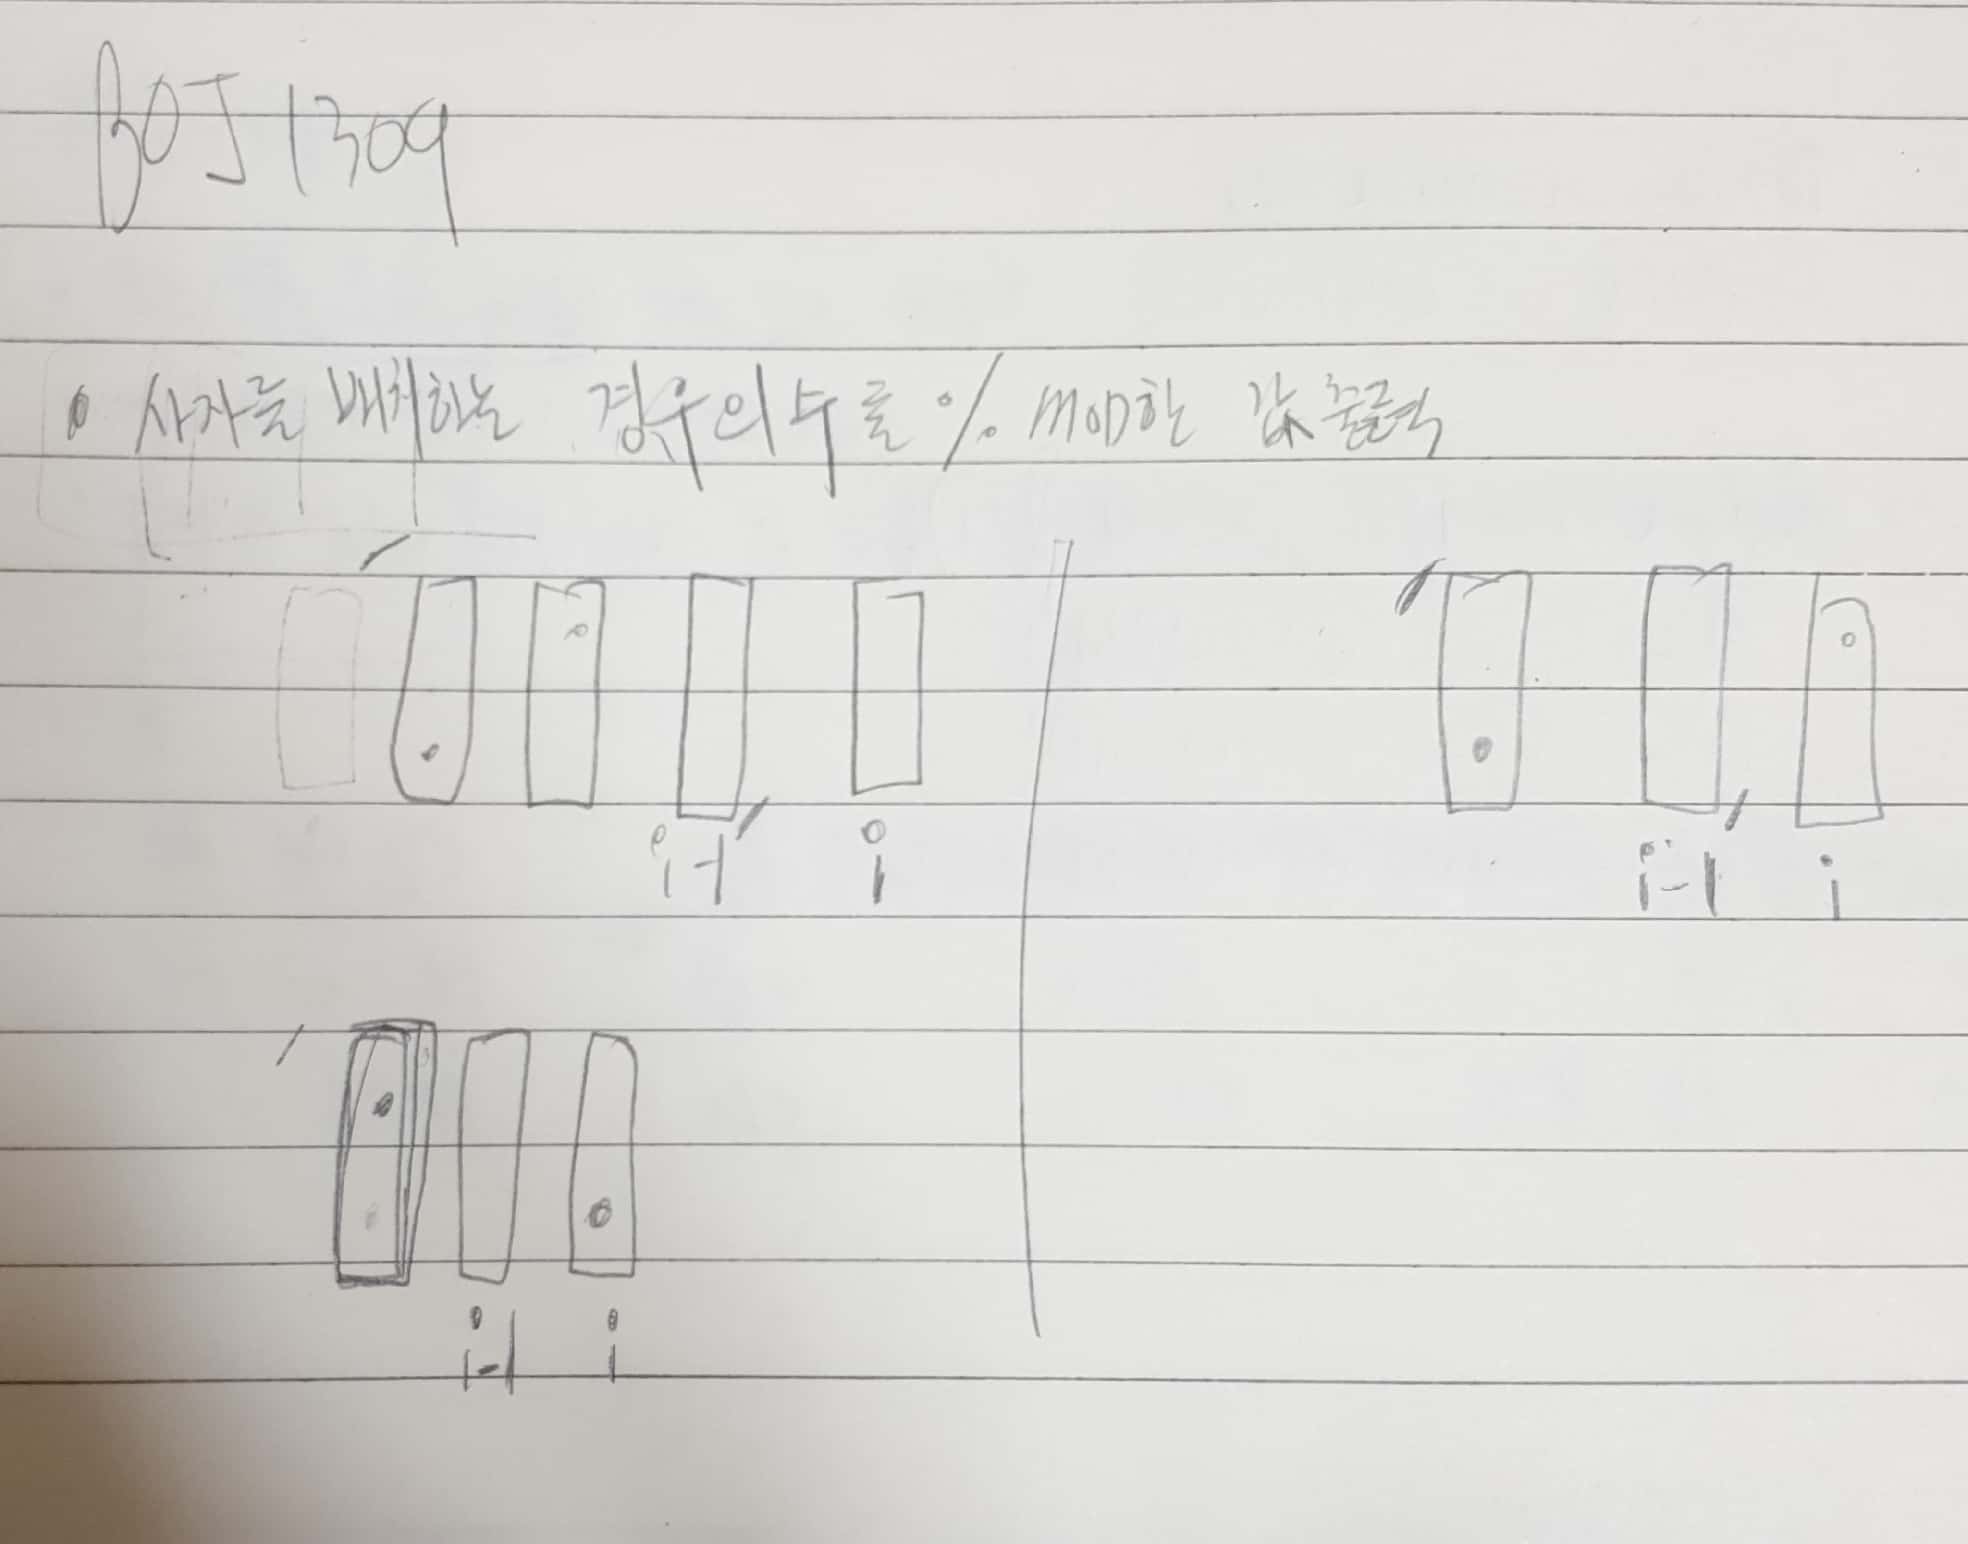 BOJ 1309
• 사자를 배치하는 경우의 수를 % MOD한 값 출력
i-1 i
i-1 i
i-1 i